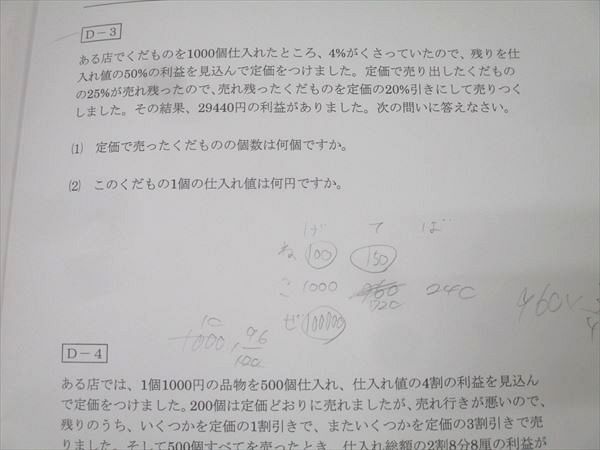 D-3
ある店でくだものを1000個仕入れたところ、4%がくさっていたので、残りを仕
入れ値の50%の利益を見込んで定価をつけました。定価で売り出したくだもの
の25%が売れ残ったので、売れ残ったくだものを定価の20%引きにして売りつく
しました。その結果、29440円の利益がありました。次の問いに答えなさい。
(1) 定価で売ったくだものの個数は何個ですか。
(2) このくだもの1個の仕入れ値は何円ですか。
げ て ば
ね 100 150
こ 1000 960 720 240
ぜ 100000
960×
10
1000 × 96/100
D-4
ある店では、1個1000円の品物を500個仕入れ、仕入れ値の4割の利益を見込ん
で定価をつけました。200個は定価どおりに売れましたが、売れ行きが悪いので、
残りのうち、いくつかを定価の1割引きで、またいくつかを定価の3割引きで売
りました。そして500個すべてを売ったとき、仕入れ総額の2割8分8厘の利益が